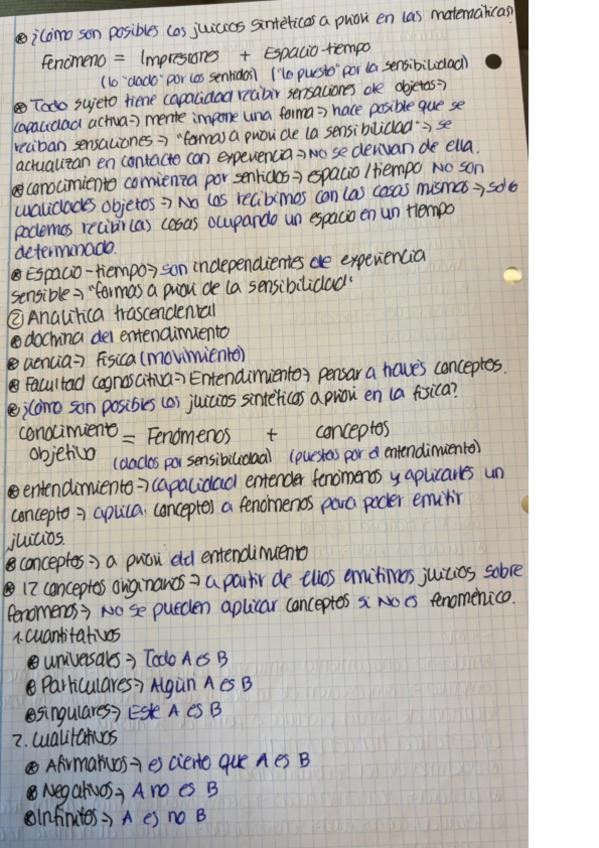 ⊛ ¿Cómo son posibles los juicios sintéticos a priori en las matemáticas?
Fenómeno = Impresiones + Espacio-tiempo
(lo "dado" por los sentidos) ("lo puesto" por la sensibilidad)
⊛ Todo sujeto tiene capacidad recibir sensaciones de objetos →
capacidad activa → mente impone una forma → hace posible que se
reciban sensaciones → "formas a priori de la sensibilidad" → se
actualizan en contacto con experiencia → NO se derivan de ella.
⊛ conocimiento comienza por sentidos → espacio/tiempo NO son
cualidades objetos → No las recibimos con las cosas mismas → solo
podemos recibir las cosas ocupando un espacio en un tiempo
determinado.
⊛ Espacio-tiempo → son independientes de experiencia
sensible → "formas a priori de la sensibilidad".
② Analítica trascendental
⊛ doctrina del entendimiento
⊛ ciencia → Física (movimiento)
⊛ Facultad cognoscitiva → Entendimiento → pensar a través conceptos.
⊛ ¿Cómo son posibles los juicios sintéticos a priori en la física?
conocimiento = Fenómenos + conceptos
objetivo (dados por sensibilidad) (puestos por el entendimiento)
⊛ entendimiento → capacidad entender fenómenos y aplicarles un
concepto → aplica conceptos a fenómenos para poder emitir
juicios.
⊛ conceptos → a priori del entendimiento
⊛ 12 conceptos originarios → a partir de ellos emitimos juicios sobre
fenómenos → NO se pueden aplicar conceptos si NO es fenoménico.
1. Cuantitativos
⊛ universales → Todo A es B
⊛ Particulares → Algún A es B
⊛ singulares → Este A es B
2. Cualitativos
⊛ Afirmativos → es cierto que A es B
⊛ Negativos → A no es B
⊛ Infinitos → A es no B